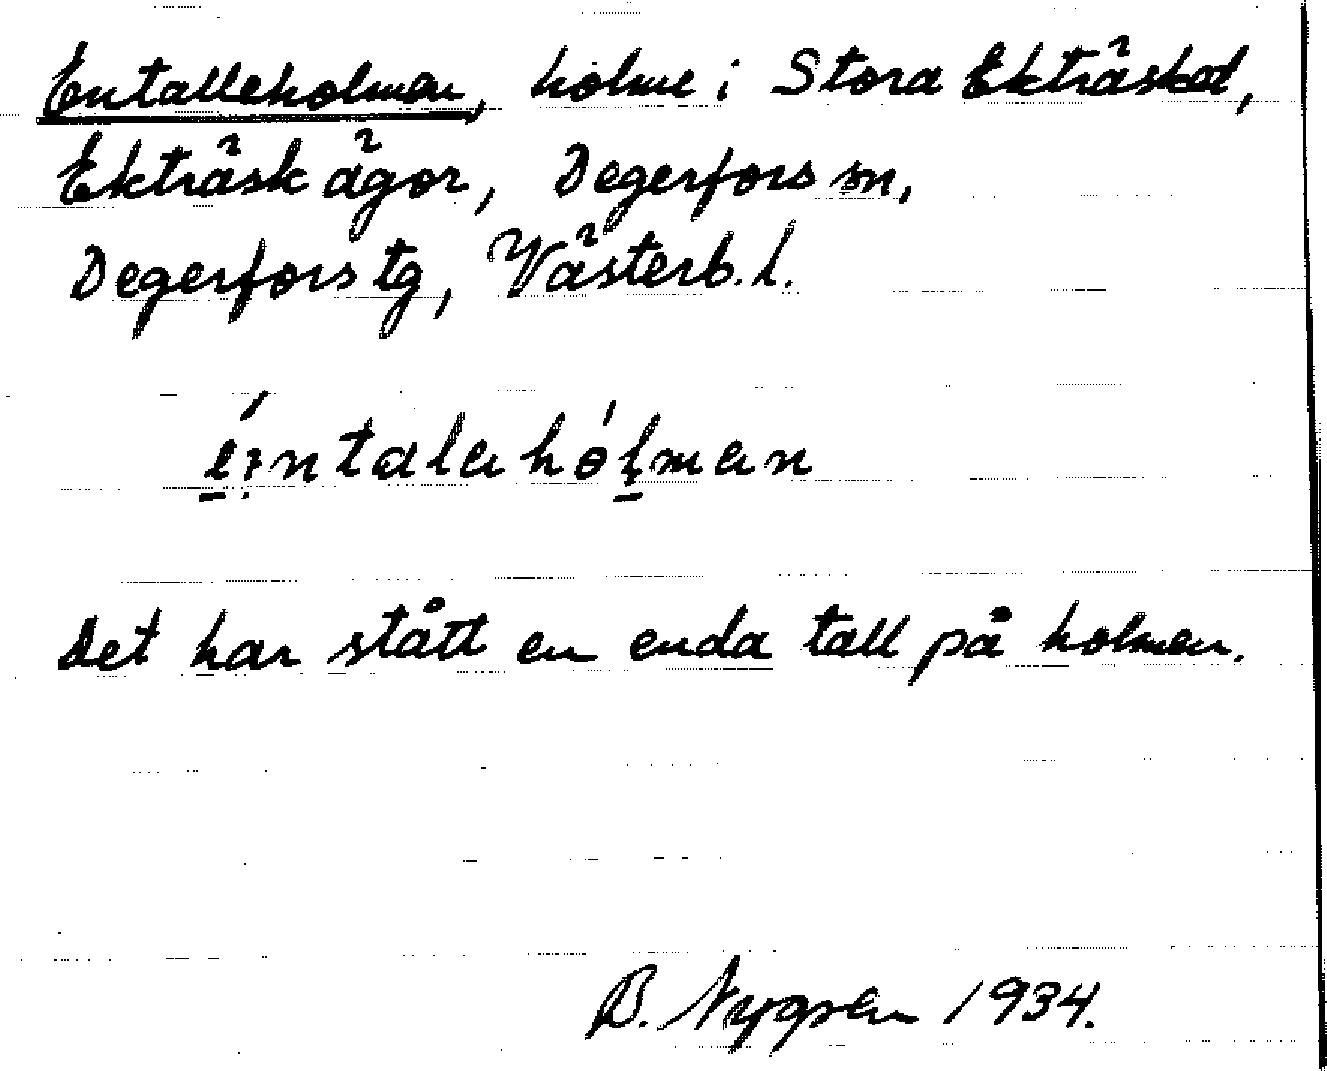 Entalleholmen, holme i Stora Ekträsket,
Ekträsk ägor, Degerfors sn,
Degerfors tg, Västerb. l.
Det har stått en enda tall på holmen.
B. Nygren 1934.